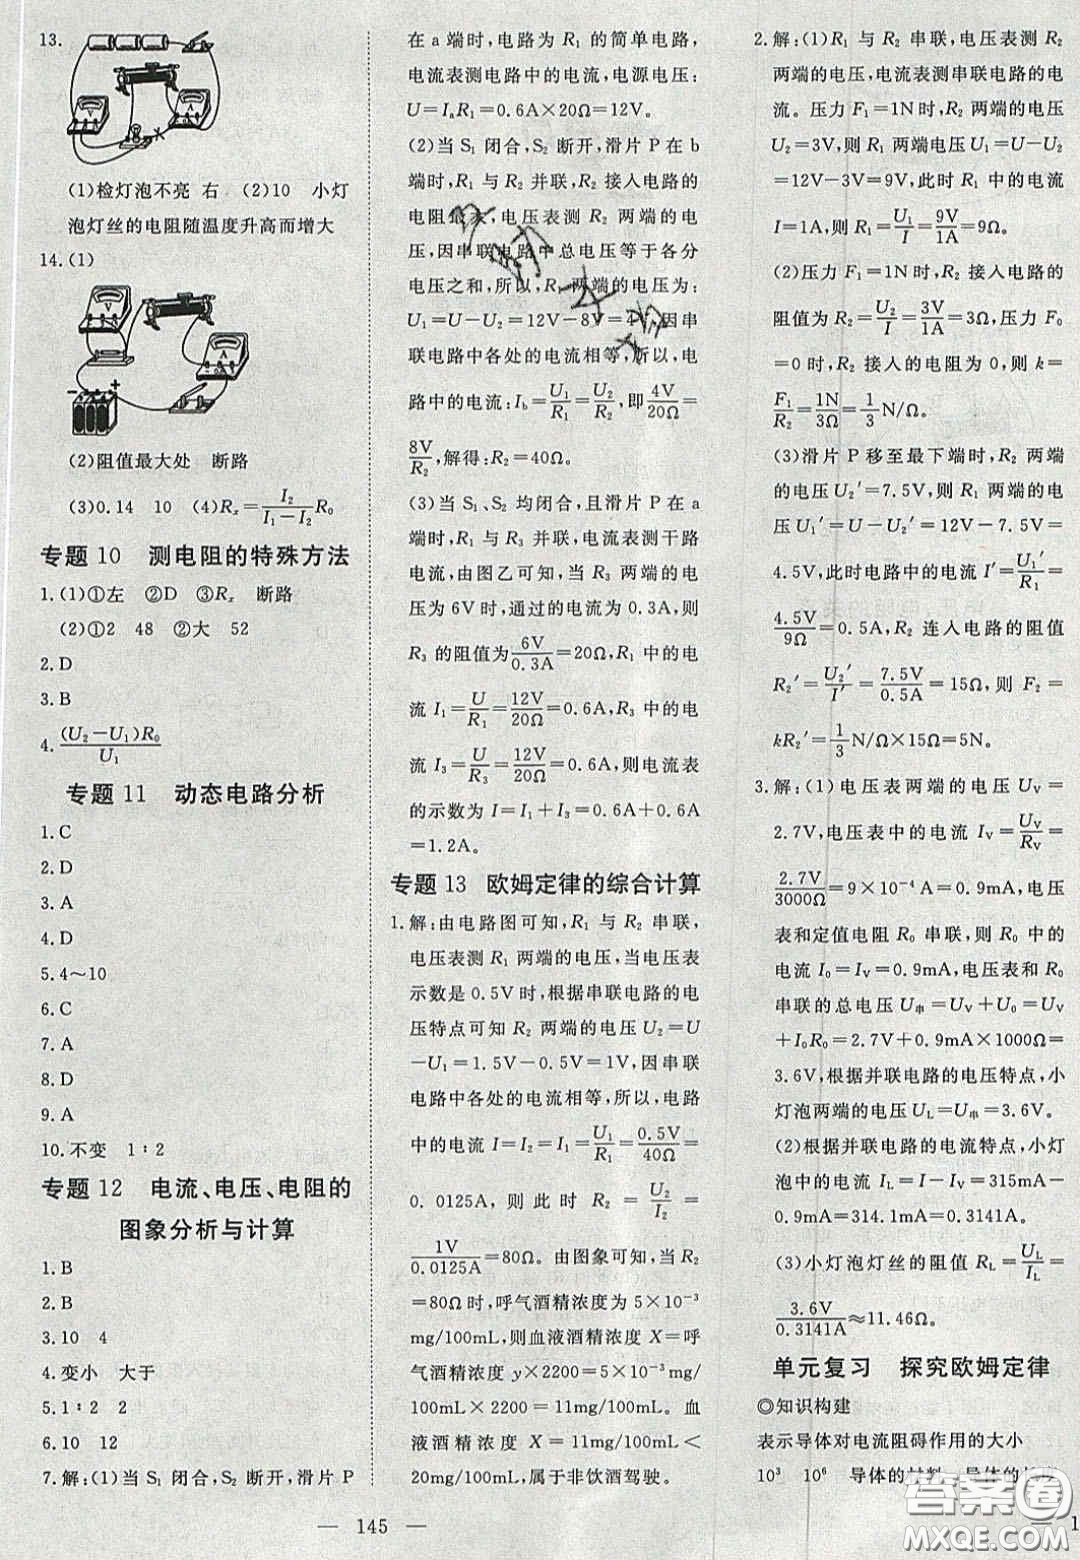 13.
(1)检灯泡不亮 右 (2)10 小灯
泡灯丝的电阻随温度升高而增大
14.(1)
(2)阻值最大处 断路
(3)0.14 10 (4)Rₓ=I₂/(I₁-I₂)R₀
专题10 测电阻的特殊方法
1.(1)①左 ②D ③Rₓ 断路
(2)①2 48 ②大 52
2.D
3.B
4.(U₂-U₁)R₀/U₁
专题11 动态电路分析
1.C
2.D
3.A
4.D
5.4~10
6.C
7.A
8.D
9.A
10.不变 1:2
专题12 电流、电压、电阻的
图象分析与计算
1.B
2.B
3.10 4
4.变小 大于
5.1:2 2
6.10 12
7.解:(1)当 S₁ 闭合,S₂ 断开,滑片 P
在 a 端时,电路为 R₁ 的简单电路,
电流表测电路中的电流,电源电压:
U=IₐR₁=0.6A×20Ω=12V。
(2)当 S₁ 闭合,S₂ 断开,滑片 P 在 b
端时,R₁ 与 R₂ 串联,接入电路的
电阻最大,电压表测 R₂ 两端的电
压,因串联电路中总电压等于各分
电压之和,所以,R₁ 两端的电压为:
U₁=U-U₂=12V-8V=4V,因串
联电路中各处的电流相等,所以,电
路中的电流:I_b=U₁/R₁=U₂/R₂,即4V/20Ω=
8V/R₂,解得:R₂=40Ω。
(3)当 S₁、S₂ 均闭合,且滑片 P 在 a
端时,R₁ 与 R₃ 并联,电流表测干路
电流,由图乙可知,当 R₃ 两端的电
压为 6V 时,通过的电流为 0.3A,则
R₃ 的阻值为6V/0.3A=20Ω,R₁ 中的电
流 I₁=U/R₁=12V/20Ω=0.6A,R₃ 中的电
流 I₃=U/R₃=12V/20Ω=0.6A,电流表
的示数为 I=I₁+I₃=0.6A+0.6A
=1.2A。
专题13 欧姆定律的综合计算
1.解:由电路图可知,R₁ 与 R₂ 串联,
电压表测 R₁ 两端的电压,当电压表
示数是 0.5V 时,根据串联电路的电
压特点可知 R₂ 两端的电压 U₂=U
-U₁=1.5V-0.5V=1V,因串联
电路中各处的电流相等,所以,电路
中的电流 I=I₂=I₁=U₁/R₁=0.5V/40Ω=
0.0125A,则此时 R₂=U₂/I₂=
1V/0.0125A=80Ω。由图象可知,当 R₂
=80Ω 时,呼气酒精浓度为 5×10⁻³
mg/100mL,则血液酒精浓度 X=呼
气酒精浓度 y×2200=5×10⁻³mg/
100mL×2200=11mg/100mL。血
液酒精浓度 X=11mg/100mL<
20mg/100mL,属于非饮酒驾驶。
2.解:(1)R₁ 与 R₂ 串联,电压表测 R₂
两端的电压,电流表测串联电路的电
流。压力 F₁=1N 时,R₂ 两端的电压
U₂=3V,则 R₁ 两端电压 U₁=U-U₂
=12V-3V=9V,此时 R₁ 中的电流
I=1A,则 R₁=U₁/I=9V/1A=9Ω。
(2)压力 F₁=1N 时,R₂ 接入电路的
阻值为 R₂=U₂/I=3V/1A=3Ω,压力 F₀
=0 时,R₂ 接入的电阻为 0,则 k=
F₁/R₂=1N/3Ω=1/3N/Ω。
(3)滑片 P 移至最下端时,R₂ 两端
的电压 U₂′=7.5V,则 R₁ 两端的电
压 U₁′=U-U₂′=12V-7.5V=
4.5V,此时电路中的电流 I′=U₁′/R₁=
4.5V/9Ω=0.5A,R₂ 连入电路的阻值
R₂′=U₂′/I′=7.5V/0.5A=15Ω,则 F₂=
kR₂′=1/3N/Ω×15Ω=5N。
3.解:(1)电压表两端的电压 U_V=
2.7V,电压表中的电流 I_V=U_V/R_V=
2.7V/3000Ω=9×10⁻⁴A=0.9mA,电压
表和定值电阻 R₀ 串联,则 R₀ 中的
电流 I₀=I_V=0.9mA,电压表和 R₀
串联的总电压 U串=U_V+U₀=U_V
+I₀R₀=2.7V+0.9mA×1000Ω=
3.6V,根据并联电路的电压特点,小
灯泡两端的电压 U_L=U串=3.6V。
(2)根据并联电路的电流特点,小灯
泡中的电流 I_L=I-I_V=315mA-
0.9mA=314.1mA=0.3141A。
(3)小灯泡灯丝的阻值 R_L=U_L/I_L=
3.6V/0.3141A≈11.46Ω。
单元复习 探究欧姆定律
◎知识构建
表示导体对电流阻碍作用的大小
10³ 10⁶ 导体的材料 导体的长度
— 145 —
— 1
答案圈
MXQE.COM